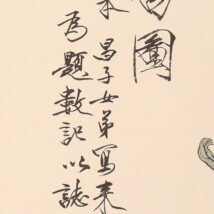 圖
昌子女弟寫来
為題數語以誌